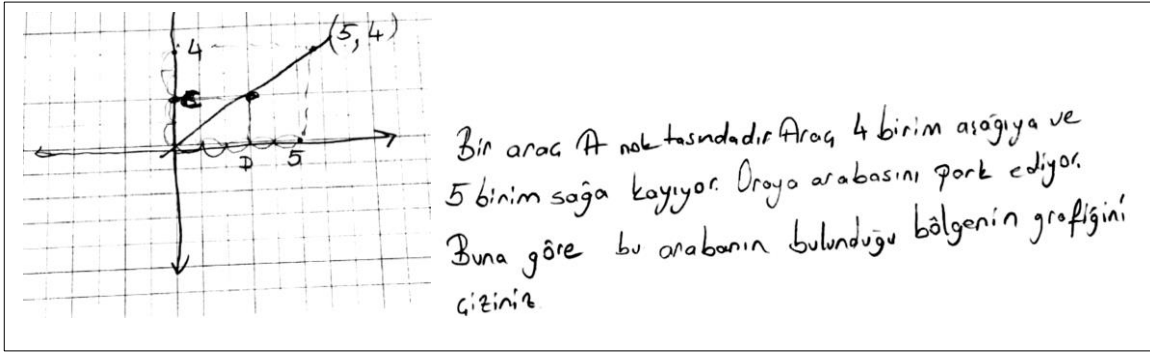 4
(5, 4)
D
5
Bir araç A noktasındadır Araç 4 birim aşağıya ve
5 birim sağa kayıyor. Oraya arabasını park ediyor.
Buna göre bu arabanın bulunduğu bölgenin grafiğini
çiziniz